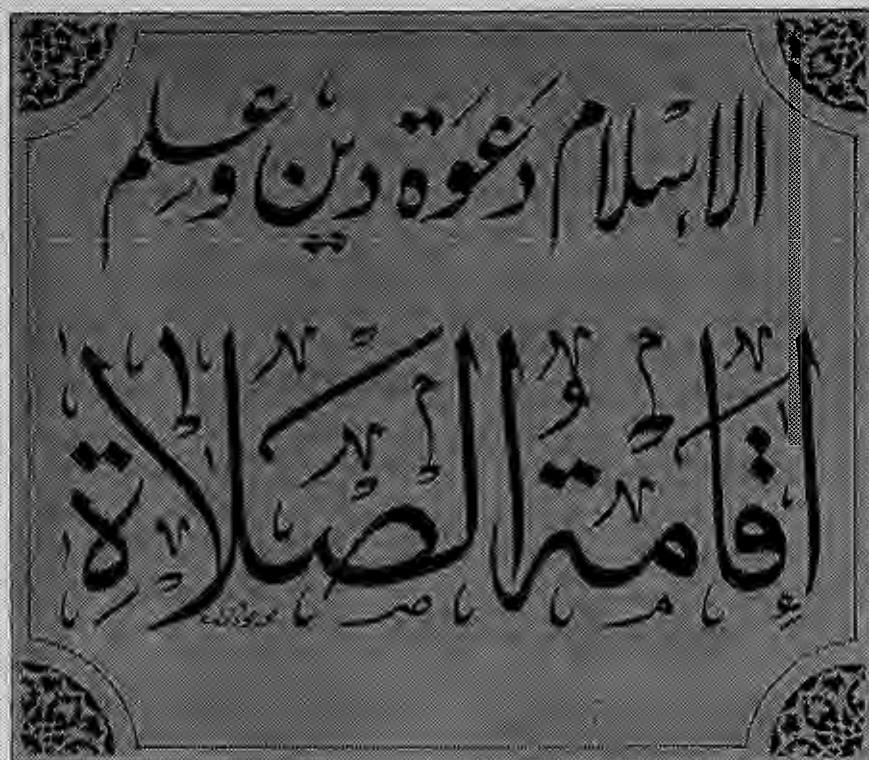 الاسلام دعوة دين وعلم
إقامة الصلاة